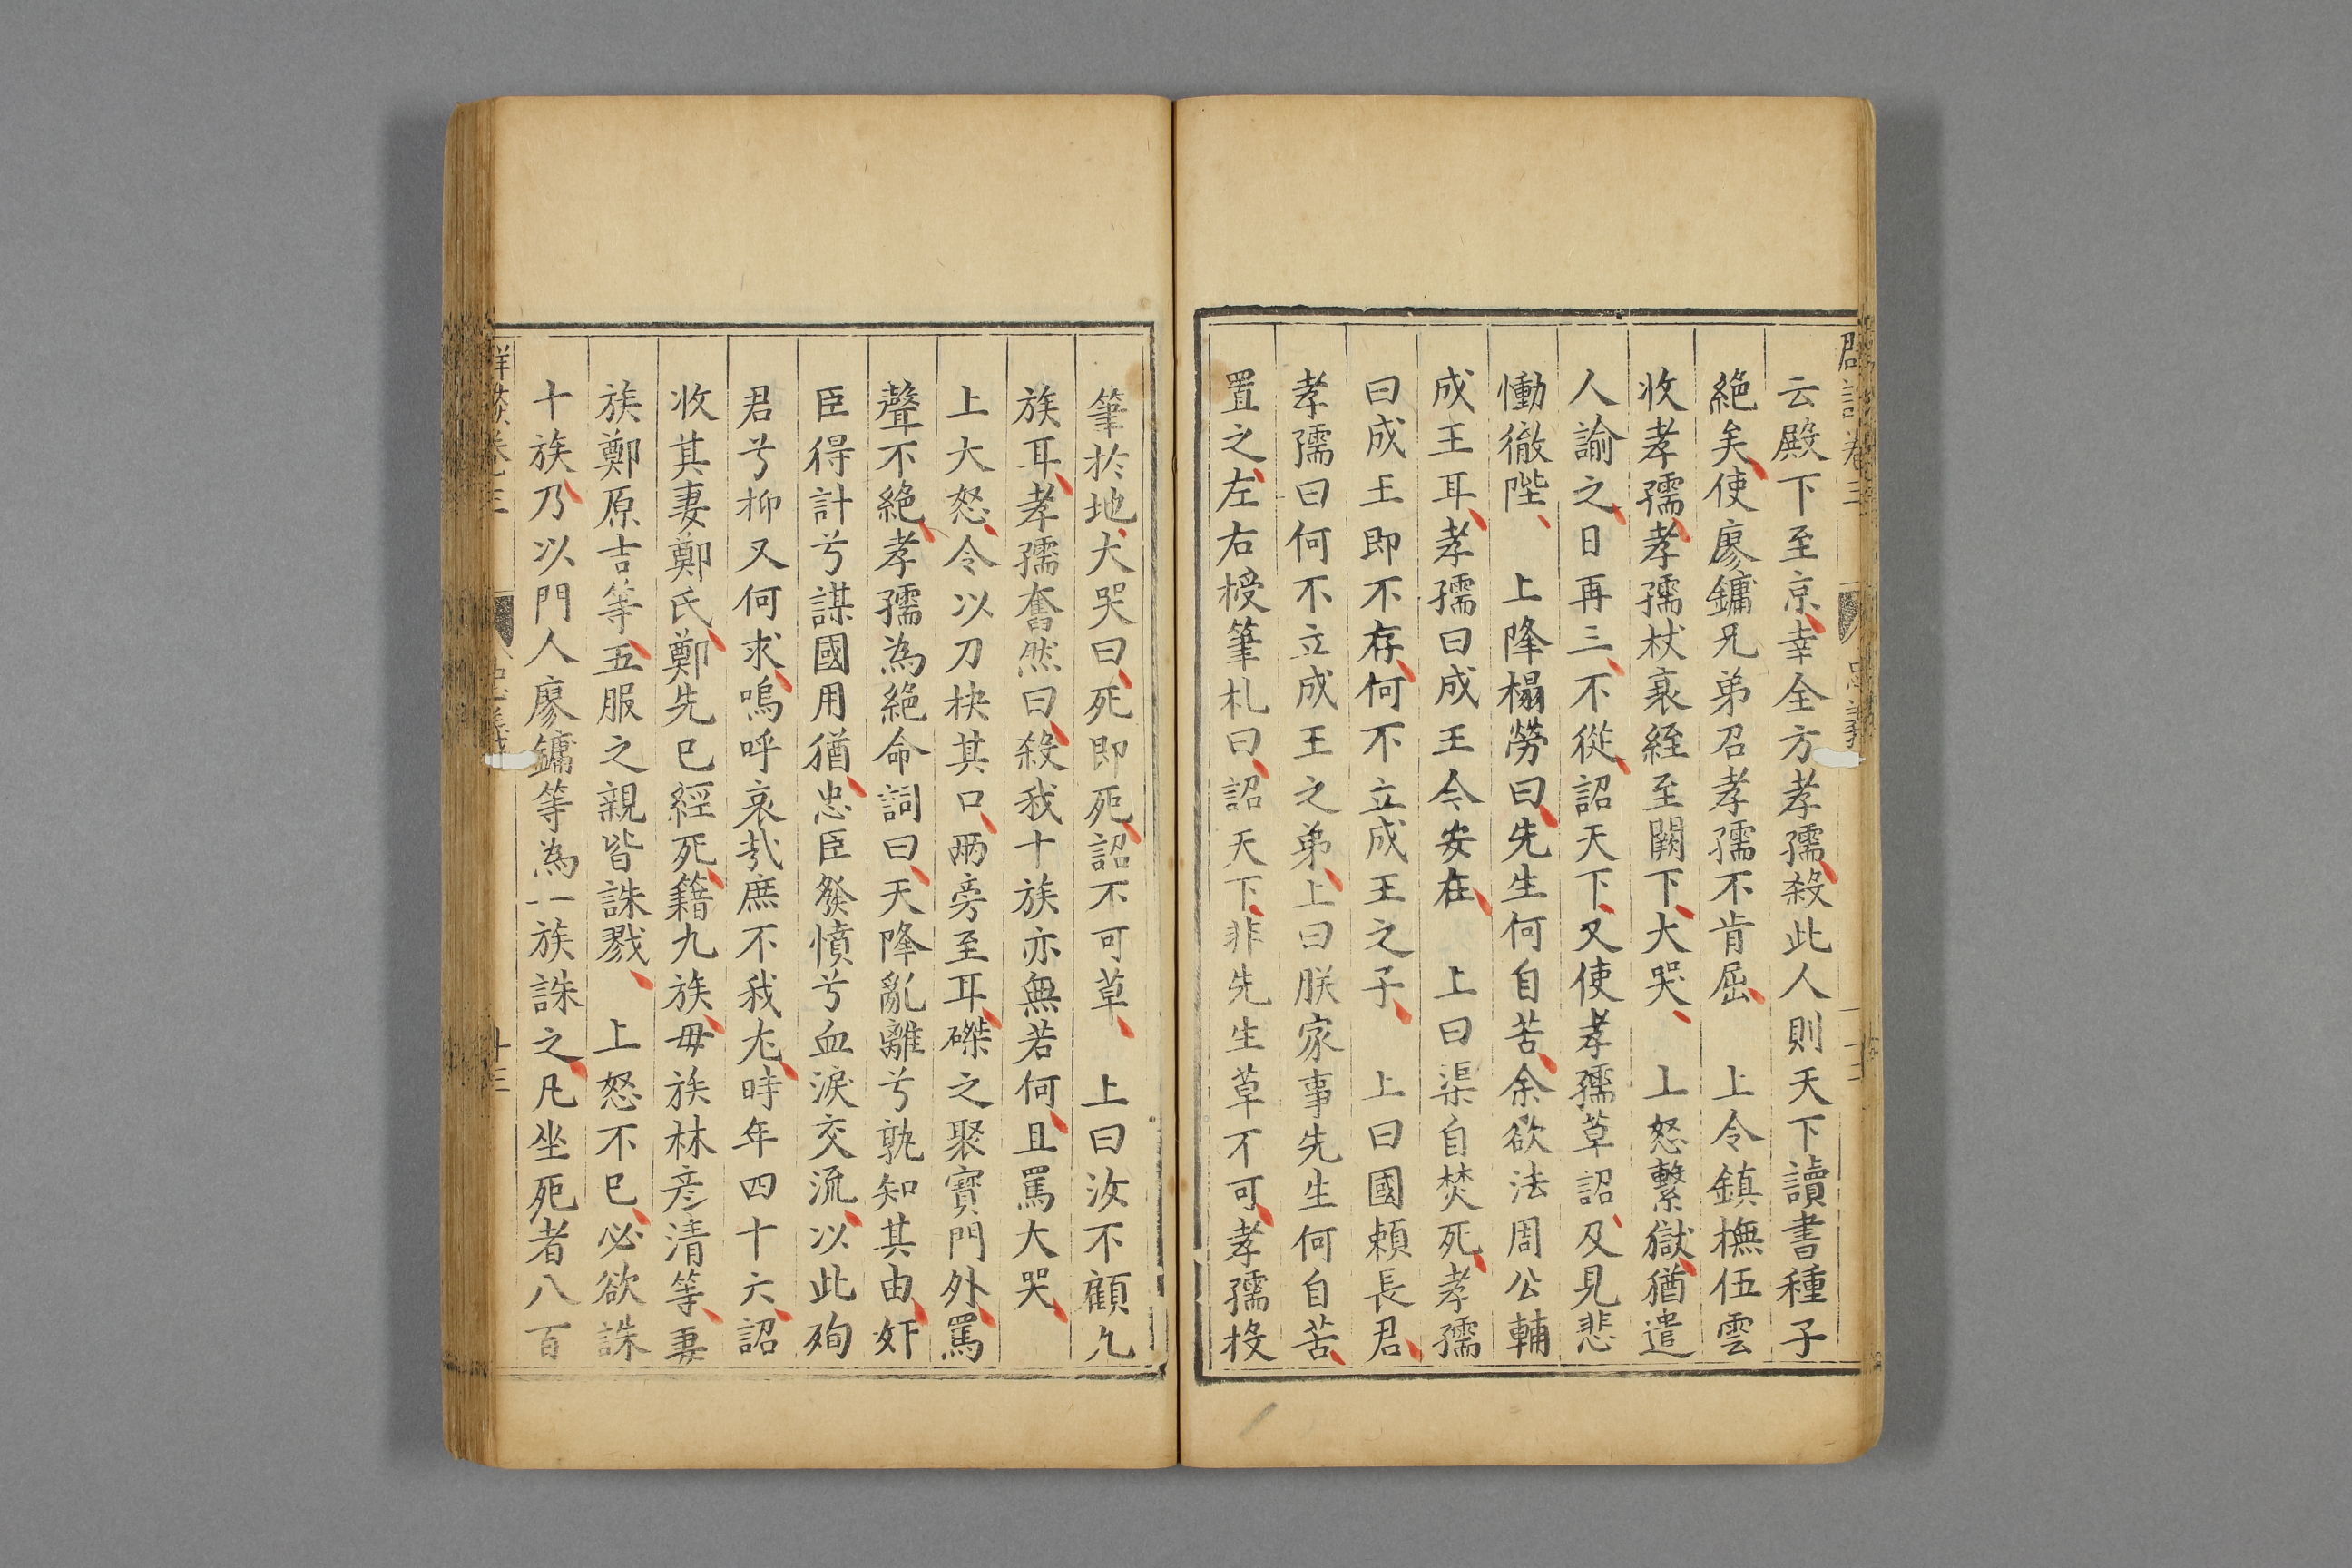 云殿下至京幸全方孝孺殺此人則天下讀書種子
絕矣使廖鏞兄弟召孝孺不肯屈　上令鎮撫伍雲
收孝孺孝孺杖衰絰至闕下大哭　上怒繫獄猶遣
人諭之日再三不從詔天下又使孝孺草詔及見悲
慟徹陛　上降榻勞曰先生何自苦余欲法周公輔
成王耳孝孺曰成王今安在　上曰渠自焚死孝孺
曰成王即不存何不立成王之子　上曰國賴長君
孝孺曰何不立成王之弟上曰朕家事先生何自苦
置之左右授筆札曰詔天下非先生草不可孝孺投
筆於地大哭曰死即死詔不可草　上曰汝不顧九
族耳孝孺奮然曰殺我十族亦無若何且罵大哭
上大怒令以刀抉其口兩旁至耳磔之聚寶門外罵
聲不絕孝孺為絕命詞曰天降亂離兮孰知其由奸
臣得計兮謀國用猶忠臣發憤兮血淚交流以此殉
君兮抑又何求嗚呼哀哉庶不我尤時年四十六詔
收其妻鄭氏鄭先已經死籍九族毋族林彥清等妻
族鄭原吉等五服之親皆誅戮　上怒不已必欲誅
十族乃以門人廖鏞等為一族誅之凡坐死者八百